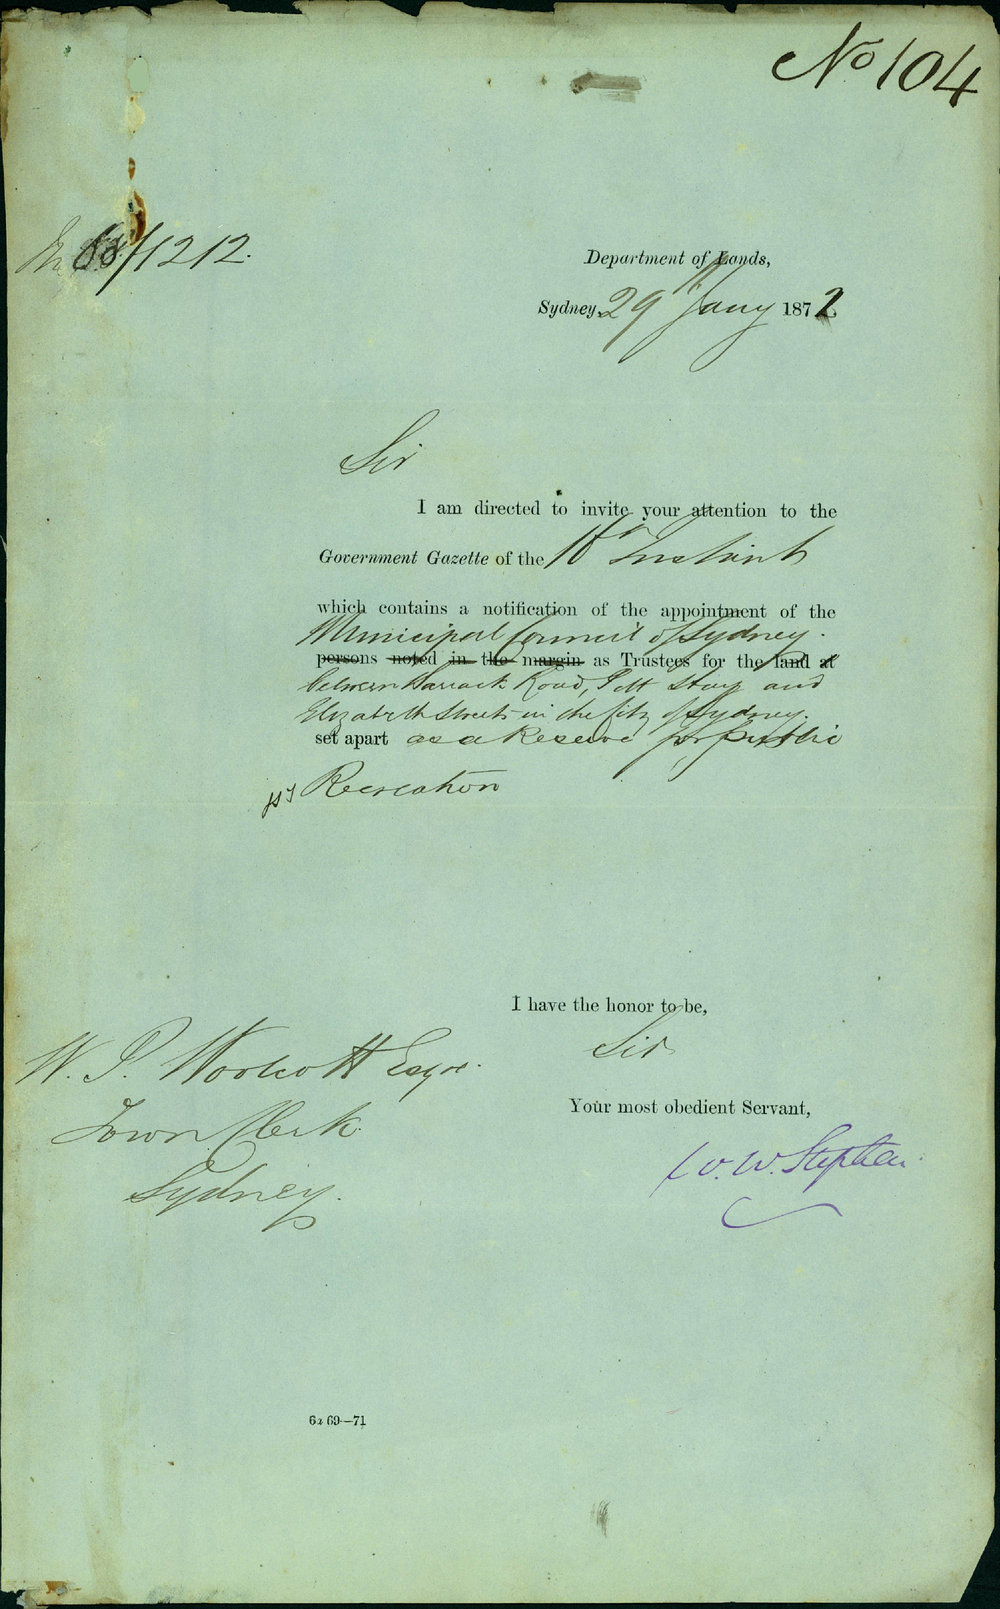 No 104
68/1212.
Department of Lands,
Sydney, 29th Jany 1872
Sir
I am directed to invite your attention to the
Government Gazette of the Instant
which contains a notification of the appointment of the
Municipal Council of Sydney.
persons noted in the margin as Trustees for the land at
between Barrack Road, Pitt Street and
Elizabeth Streets in the City of Sydney.
set apart as a Reserve for public
Recreation
I have the honor to be,
Sir
W. P. Woolcott Esqre.
Your most obedient Servant,
Town Clerk
W. W. Stephen
Sydney.
6a 69—71